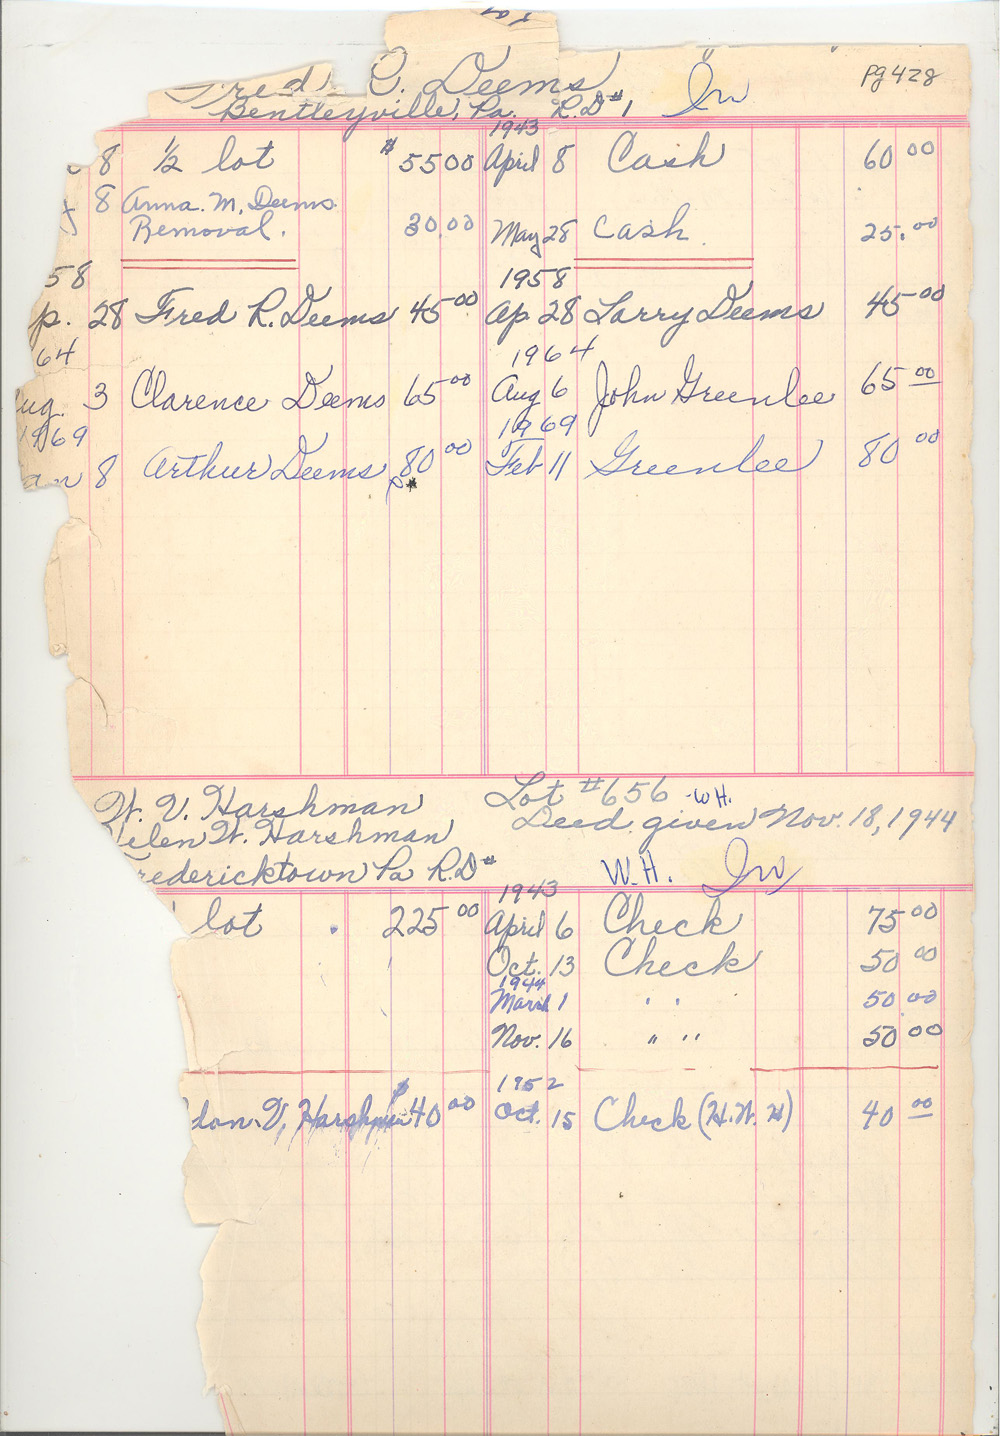 Fred C. Deems
Pg 428
Bentleyville, Pa. R.D #1 In
1943
8 1/2 lot $55 00 April 8 Cash 60 00
8 Anna. M. Deems
Removal. 30.00 May 28 Cash. 25.00
58 1958
p. 28 Fred R. Deems 45 00 Ap. 28 Larry Deems 45 00
64 1964
ug. 3 Clarence Deems 65 00 Aug 6 John Greenlee 65 00
1969 1969
an 8 Arthur Deems 80 00 Feb 11 Greenlee 80 00
W. V. Harshman Lot #656 -W.H.
Helen W. Harshman Deed given Nov. 18, 1944
Fredericktown Pa R.D#
W.H. In
1943
lot 225 00 April 6 Check 75 00
Oct. 13 Check 50 00
1944
March 1 " " 50 00
Nov. 16 " " 50 00
1952
don. V. Harshman $40 00 Oct. 15 Check (H.W.H) 40 00